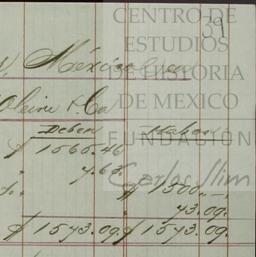 39
CENTRO DE
ESTUDIOS
DE HISTORIA
DE MEXICO
FUNDACIÓN
Carlos Slim
México
& Ca
Deben Haban
$ 1565.46
" 7.63.
$ 1500.
43.09.
$ 1573.09. $ 1573.09.